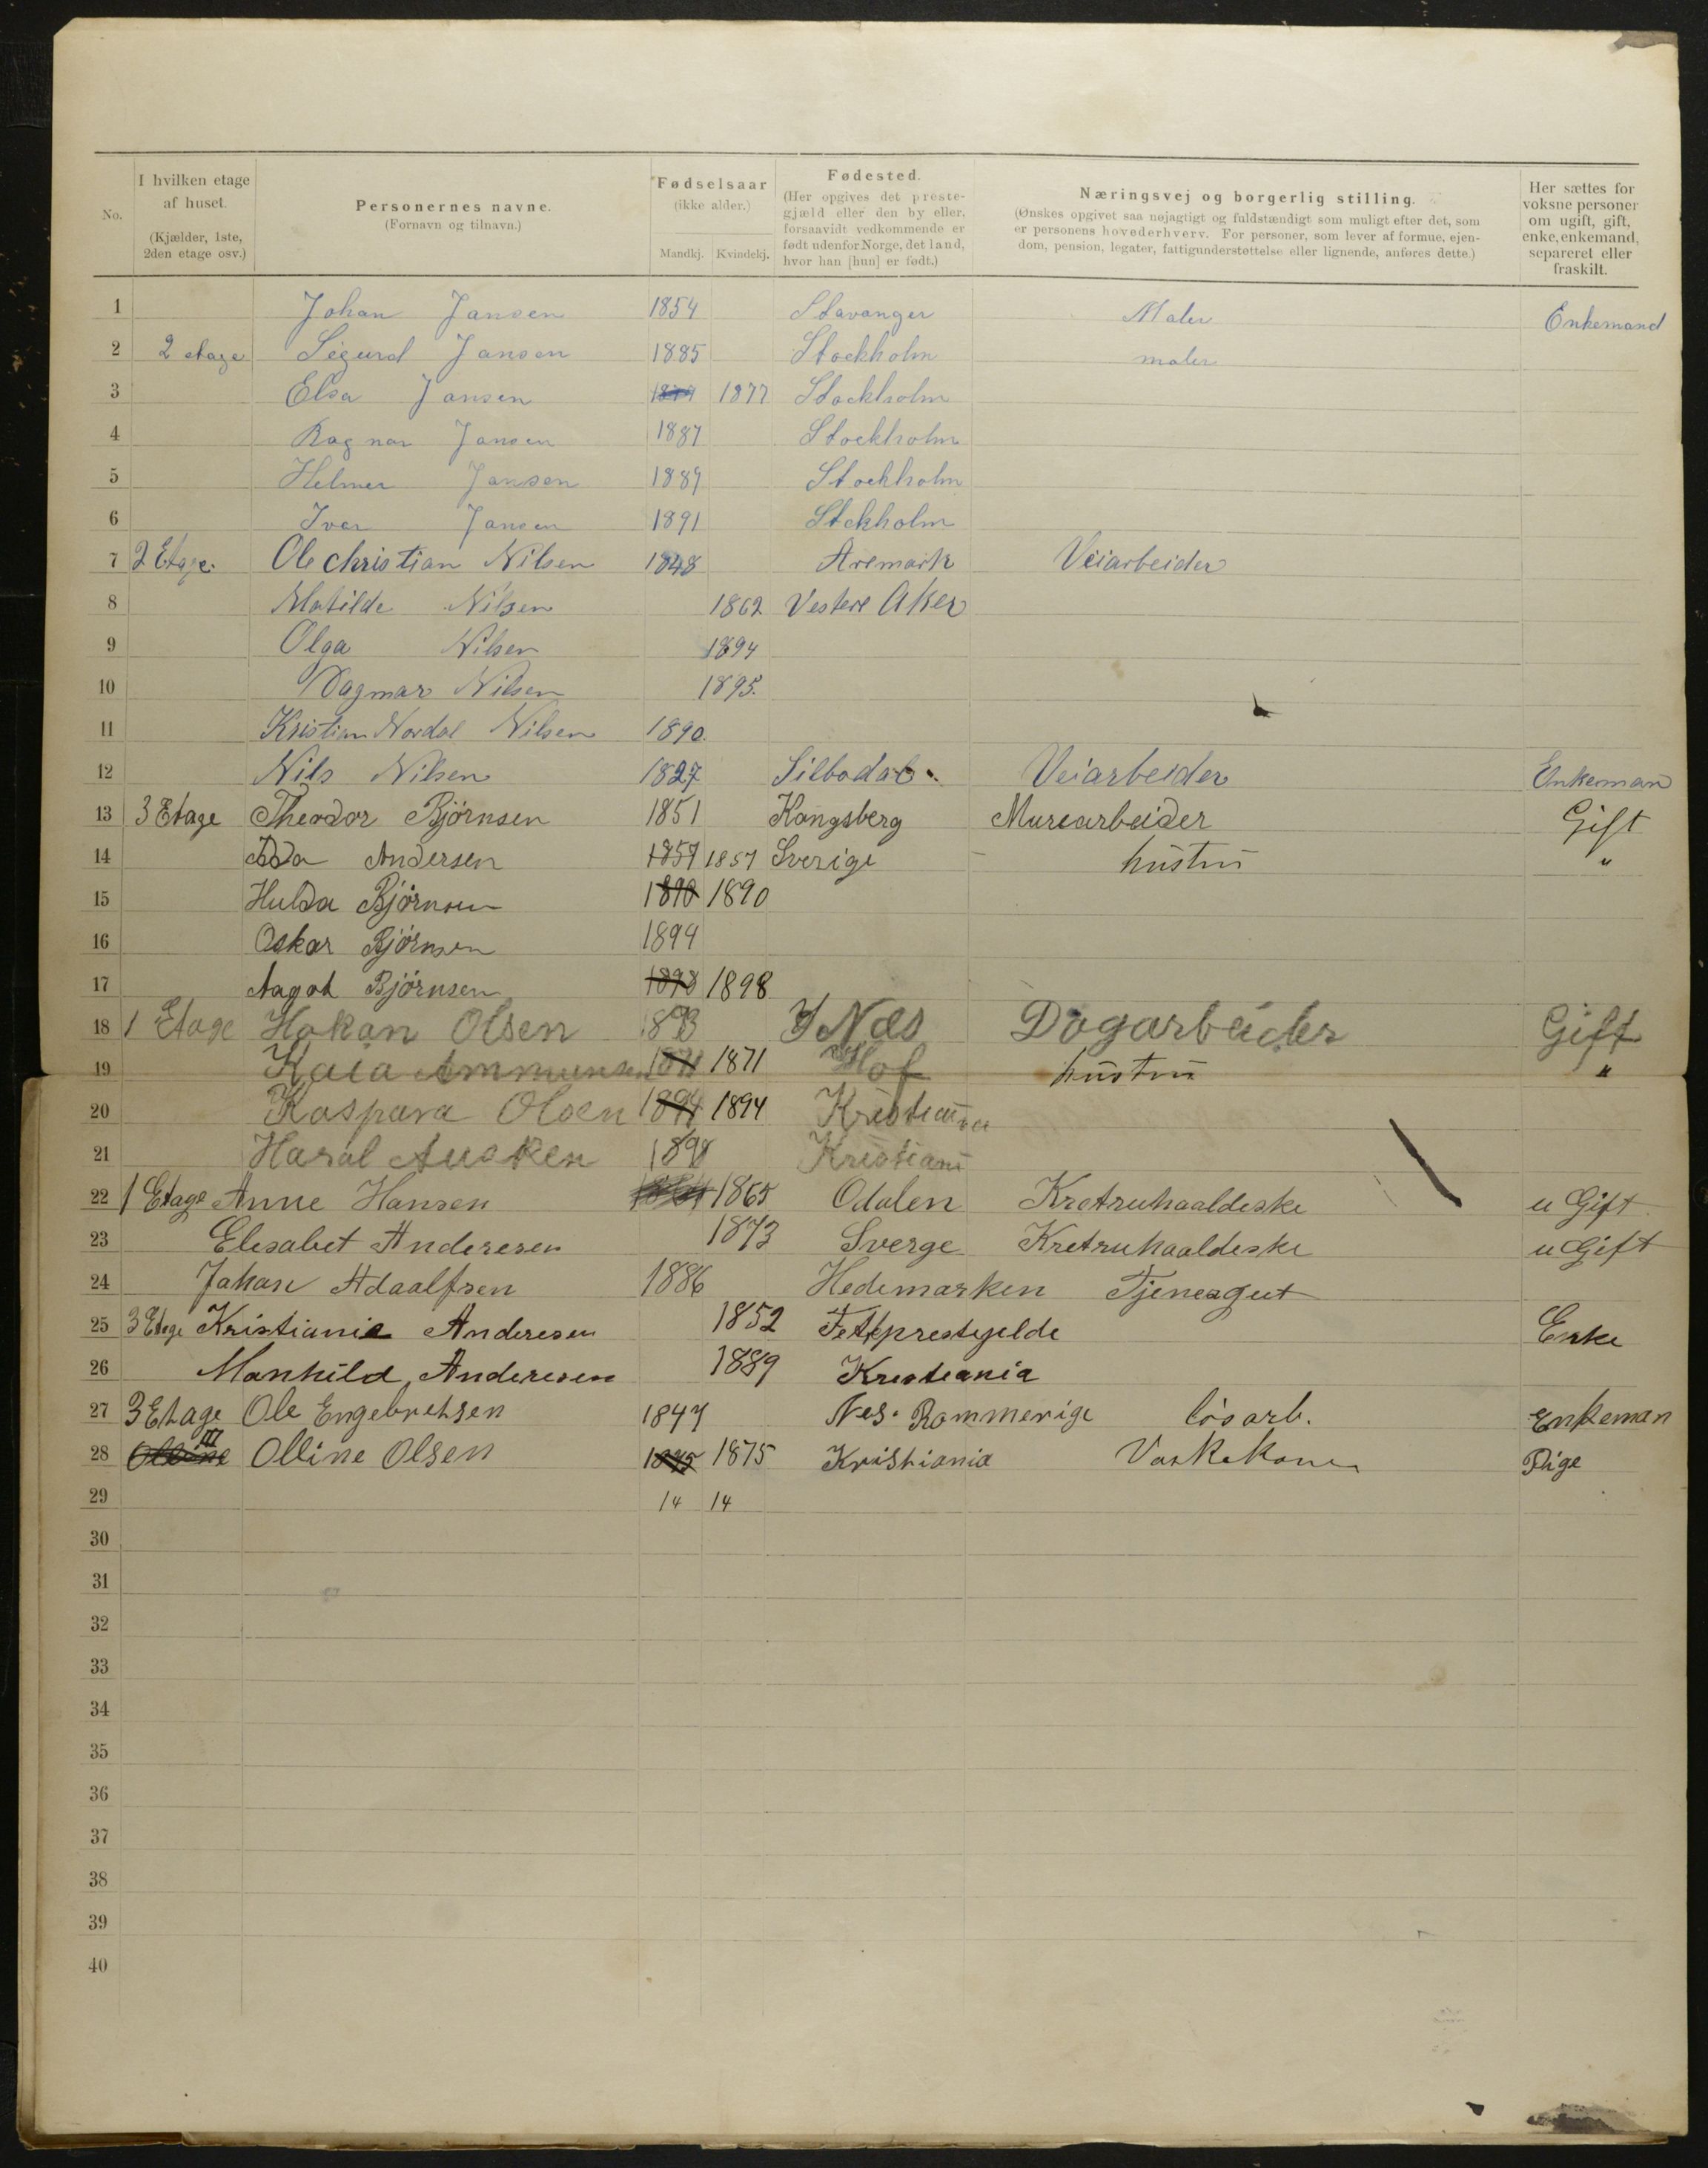 No.
I hvilken etage af huset.
(Kjælder, 1ste, 2den etage osv.)
Personernes navne.
(Fornavn og tilnavn.)
Fødselsaar
(ikke alder.)
Mandkj. Kvindekj.
Fødested.
(Her opgives det prestegjæld eller den by eller, forsaavidt vedkommende er født udenfor Norge, det land, hvor han [hun] er født.)
Næringsvej og borgerlig stilling.
(Ønskes opgivet saa nøjagtigt og fuldstændigt som muligt efter det, som er personens hovederhverv. For personer, som lever af formue, ejendom, pension, legater, fattigunderstøttelse eller lignende, anføres dette.)
Her sættes for voksne personer om ugift, gift, enke, enkemand, separeret eller fraskilt.
1 Johan Jansen 1854 Stavanger Maler Enkemand
2 2 etage Sigurd Jansen 1885 Stockholm maler
3 Elsa Jansen 1877 Stockholm
4 Ragnar Jansen 1887 Stockholm
5 Helmer Jansen 1889 Stockholm
6 Ivar Jansen 1891 Stckholm
7 2 Etage. Ole christian Nilsen 1848 Aremark Veiarbeider
8 Matilde Nilsen 1862 Vestere Aker
9 Olga Nilsen 1894
10 Dagmar Nilsen 1895.
11 Kristian Nordal Nilsen 1890.
12 Nils Nilsen 1827 Silbodal Veiarbeider Enkeman
13 3 Etage Theodor Bjørnsen 1851 Kongsberg Murearbeider Gift
14 Ida Andersen 1857 1857 Sverige hustru "
15 Hulda Bjørnsen 1890 1890
16 Oskar Bjørnsen 1894
17 Aagot Bjørnsen 1898 1898
18 1 Etage Hakan Olsen Næs Dagarbeider Gift
19 Kaia 1871 1871 Hof hustru "
20 Kaspara Olsen 1894 1894 Kristiania
21 Haral 1898 Kristiani
22 1 Etage Anne Hansen 1865 Odalen Kretruhaaldeske u Gift
23 Elesabet Anderesen 1873 Sverge Kretruhaaldeske u Gift
24 Johan Adaalfsen 1886 Hedemarken Tjenesgut
25 3 Etage Kristianie Anderesen 1852 Fetprestegelde Enke
26 Manhild Anderesen 1889 Krestiania
27 3 Etage Ole Engebretsen 1847 Nes. Rommerige løsarb. Enkeman
28 Olline III Olline Olsen 1875 1875 Kristiania Vaskekone Pige
29 14 14
30
31
32
33
34
35
36
37
38
39
40